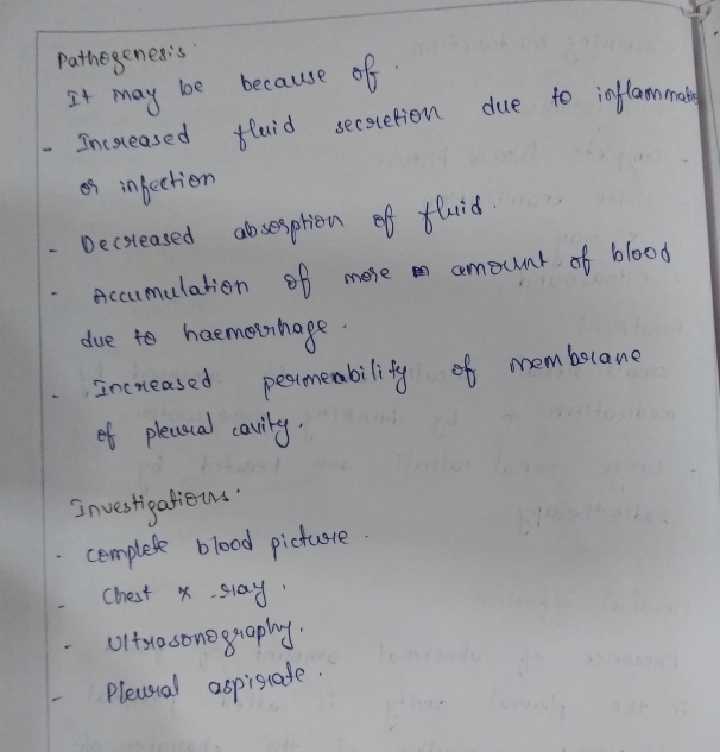 Pathogenesis
It may be because of.
- Increased fluid secretion due to inflammati
or infection
- Decreased absorption of fluid.
- Accumulation of more amount of blood
due to haemorrhage.
- Increased permeability of membrane
of pleural cavity.
Investigations.
- complete blood picture.
- Chest x-ray.
- Ultrasonography.
- Pleural aspirate.